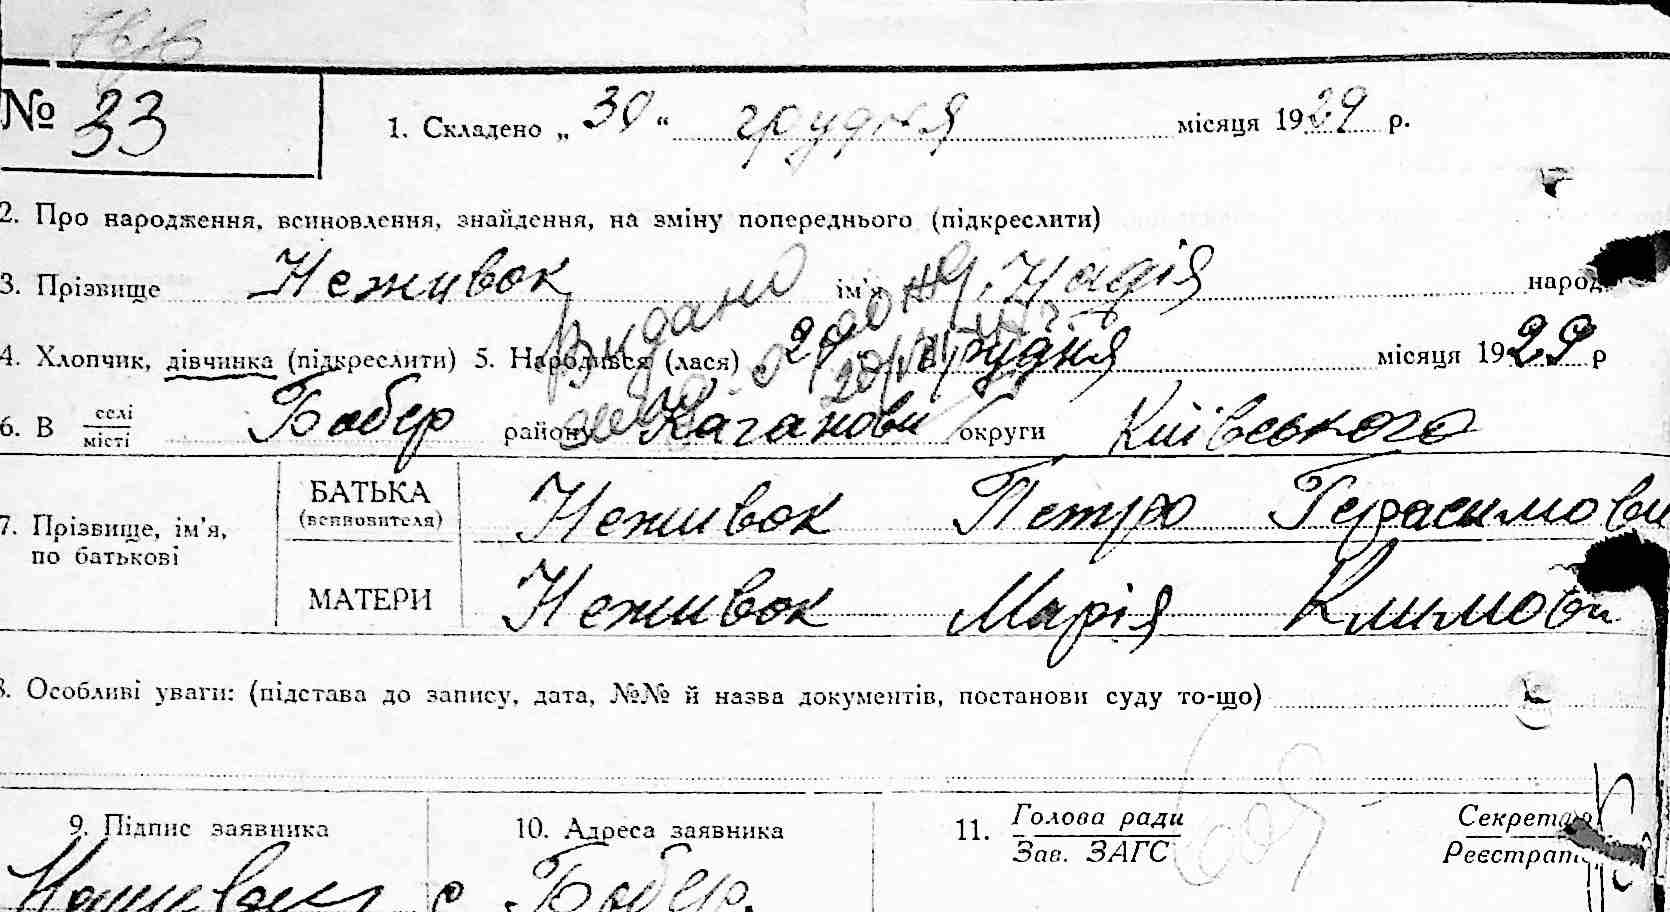 № 33
1. Складено „ 30 “ грудня місяця 1929 р.
2. Про народження, всиновлення, знайдення, на зміну попереднього (підкреслити)
3. Прізвище Неживок ім'я Надія народ
4. Хлопчик, дівчинка (підкреслити) 5. Народився (лася) 29 грудня місяця 1929 р
Видано
6. В селі місті Бобер району Каганови округи Київського
7. Прізвище, ім'я, по батькові
БАТЬКА (всиновителя) Неживок Петро Герасимови
МАТЕРИ Неживок Марія Климови
8. Особливі уваги: (підстава до запису, дата, №№ й назва документів, постанови суду то-що)
9. Підпис заявника 10. Адреса заявника 11. Голова ради Секретар
Зав. ЗАГС Реєстрат
с. Бобер.